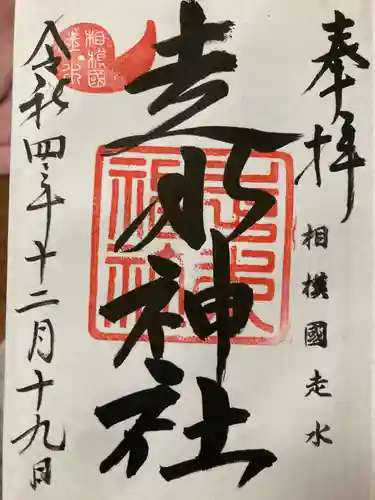 奉拝
相模國走水
走水神社
令和四年十二月十九日
相模國
走水
走水神社